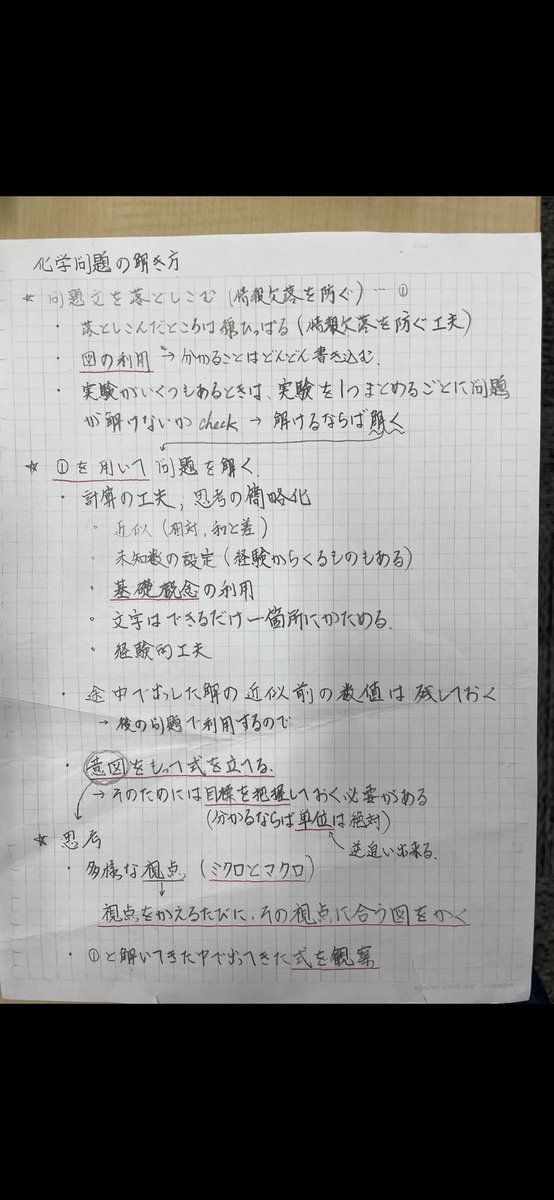 Date
化学問題の解き方
★ 問題文を落としこむ (情報欠落を防ぐ) … ①
・落としこんだところは線ひっぱる (情報欠落を防ぐ工夫)
・図の利用 → 分かることはどんどん書き込む.
・実験がいくつもあるときは、実験を1つまとめるごとに問題
が解けないか check → 解けるならば解く
★ ①を用いて問題を解く.
・計算の工夫, 思考の簡略化
・近似 (相対, 和と差)
・未知数の設定 (経験からくるものもある)
・基礎概念の利用
・文字はできるだけ一箇所にかためる.
・経験的工夫
・途中で出した解の近似前の数値は残しておく
→ 後の問題で利用するので
・意図をもって式を立てる.
→ そのためには目標を把握しておく必要がある
(分かるならば単位は絶対)
逆追い出来る.
★ 思考
・多様な視点 (ミクロとマクロ)
視点をかえるたびに、その視点に合う図をかく
・①と解いてきた中で出てきた式を観察